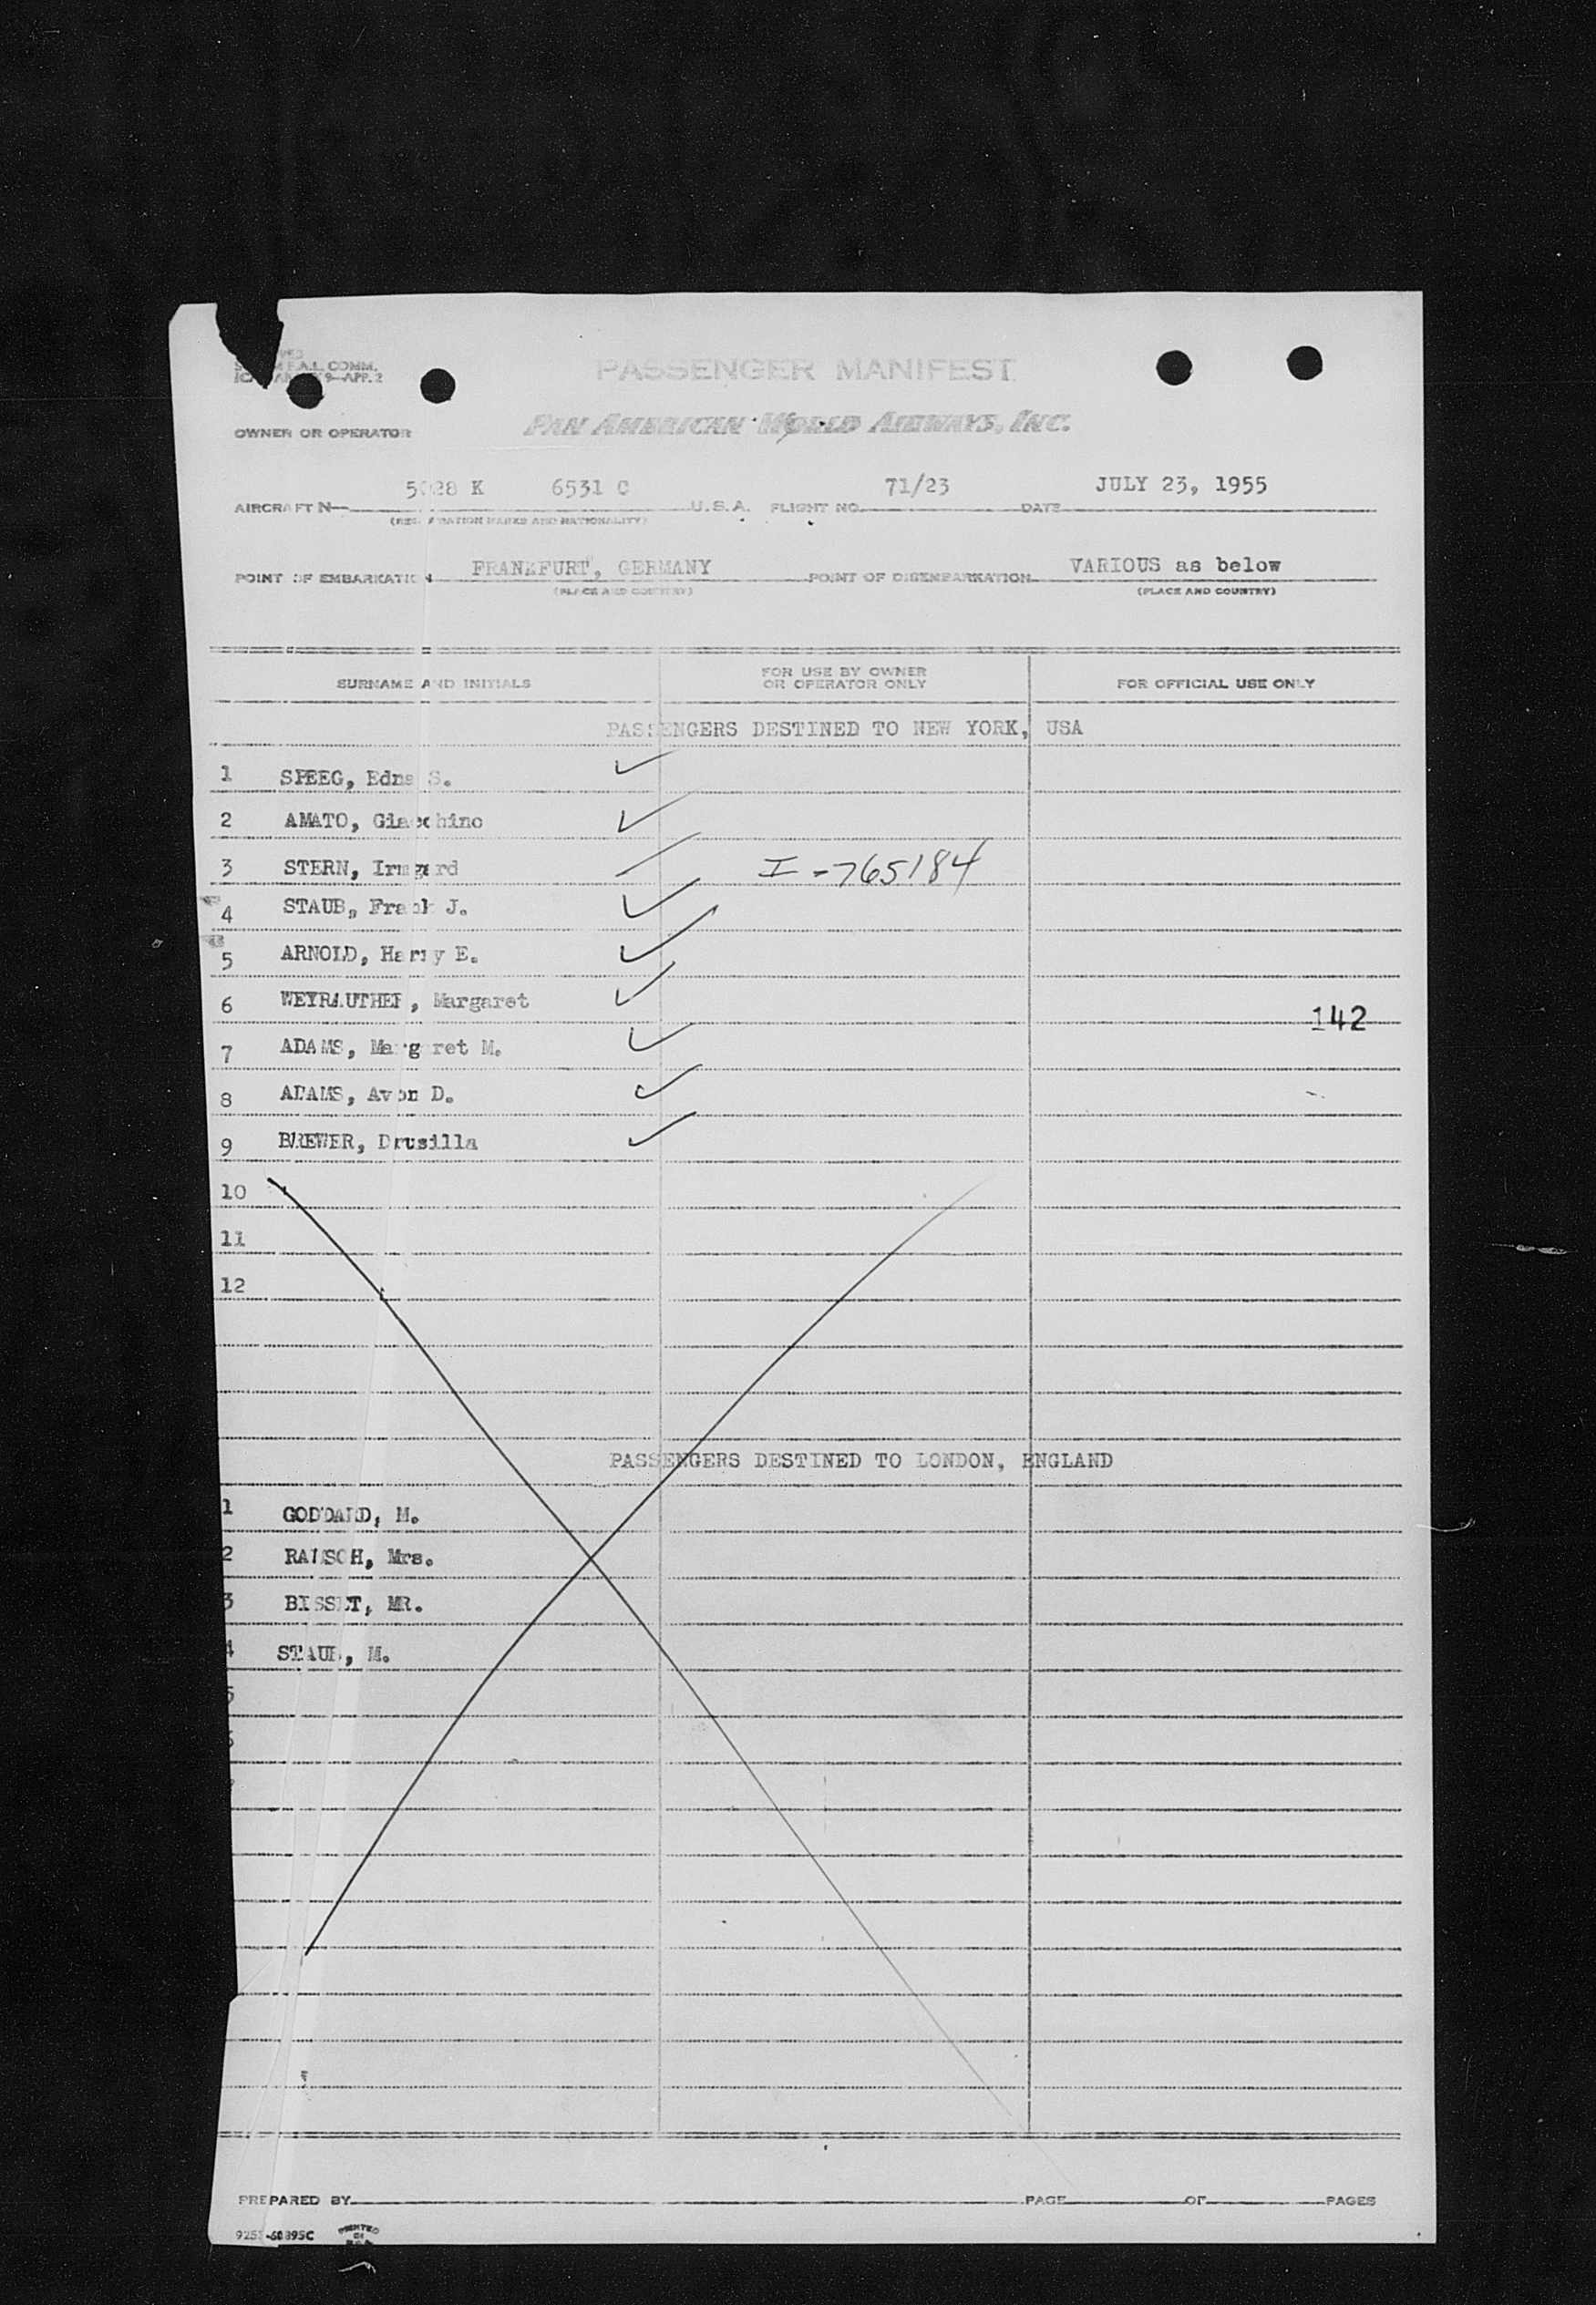 F.A.L. COMM.
9—APP. 2
PASSENGER MANIFEST
OWNER OR OPERATOR PAN AMERICAN WORLD AIRWAYS, INC.
AIRCRAFT N— 5028 K 6531 C U.S.A. FLIGHT NO. 71/23 DATE JULY 23, 1955
(REGISTRATION MARKS AND NATIONALITY)
POINT OF EMBARKATION FRANKFURT, GERMANY POINT OF DISEMBARKATION VARIOUS as below
(PLACE AND COUNTRY) (PLACE AND COUNTRY)
SURNAME AND INITIALS FOR USE BY OWNER OR OPERATOR ONLY FOR OFFICIAL USE ONLY
PASSENGERS DESTINED TO NEW YORK, USA
1 SPEEG, Edna S.
2 AMATO, Giacchino
3 STERN, Irmgard I-765184
4 STAUB, Frank J.
5 ARNOLD, Harry E.
6 WEYRAUTHER, Margaret
142
7 ADAMS, Margaret M.
8 ADAMS, Avon D.
9 BREWER, Drusilla
10
11
12
PASSENGERS DESTINED TO LONDON, ENGLAND
1 GODDARD, M.
2 RAUSCH, Mrs.
3 BISSET, MR.
4 STAUB, M.
5
6
PREPARED BY PAGE OF PAGES
PRINTED